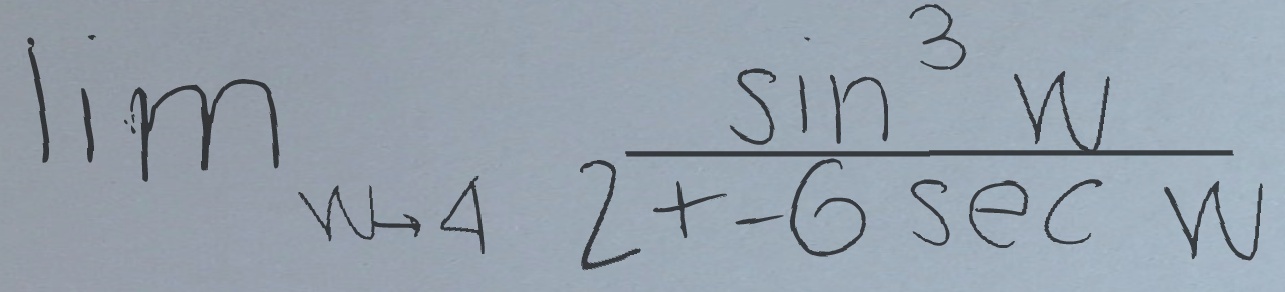 \lim_{w \to 4} \frac{\sin^3 w}{2 + -6 \sec w}